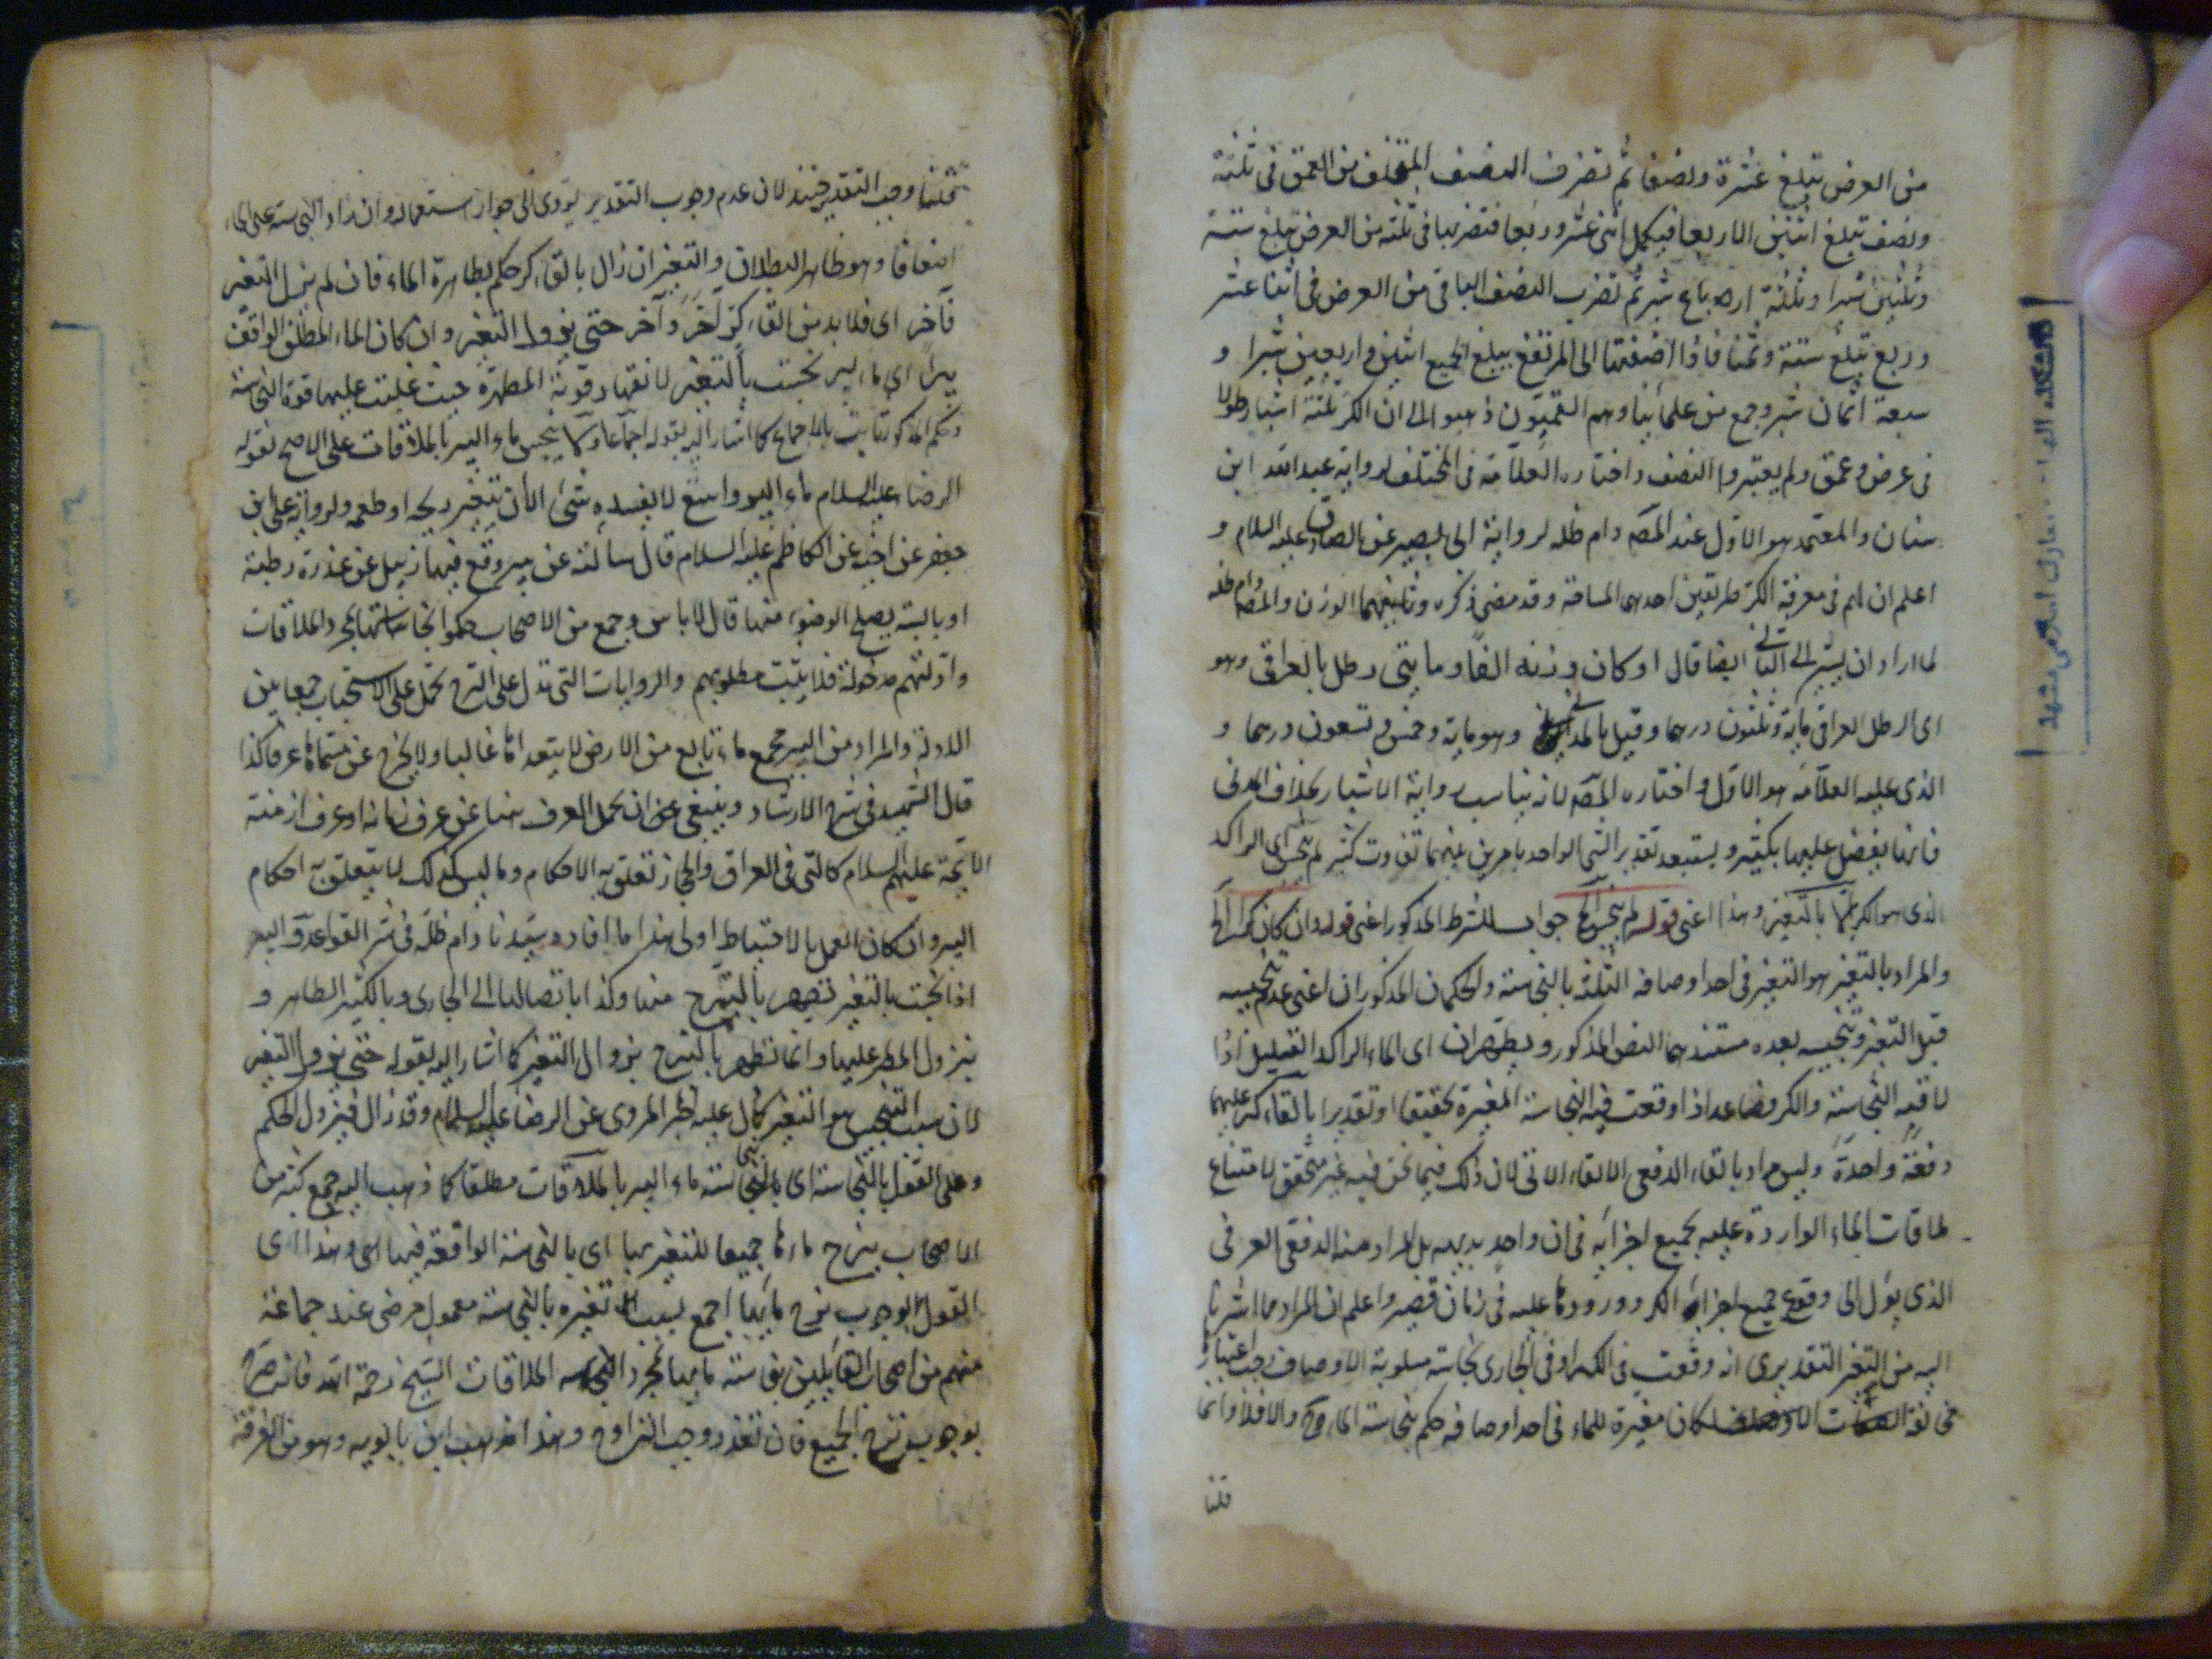 من العرض تبلغ عشرة ونصفا ثم تضرف النصف المتخلف من العمق فى ثلثة
ونصف تبلغ اثنين الا ربعا فيكمل اثنى عشر وربعا فتضربها فى ثلثه من العرض تبلغ ستة
وثلثين شبرا وثلثة ارباع شبر ثم تضرب النصف الباقى من العرض فى اثنا عشر
وربع تبلغ ستة وثمنا فاذا اضفتها الى المرتفع يبلغ الجميع اثنين و اربعين شبرا و
سبعة اثمان شبر وجمع من علمائنا وهم القميون ذهبوا الى ان الكر ثلثة اشبار طولا
فى عرض وعمق ولم يعتبروا النصف واختاره العلامة فى المختلف لرواية عبد الله ابن
سنان والمعتمد هو الاول عند المصه دام ظله لرواية ابى بصير عن الصادق عليه السلام و
اعلم ان لهم فى معرفة الكر طريقين احدهما المساحة وقد مضى ذكره وثانيهما الوزن والمصه دام ظله
لما اراد ان يشير الى الثانى ايضا قال او كان وزنه الفا وما يتى رطل بالعراقى وهو
اى الرطل العراقى ماية وثلثون درهما وقيل بالمدنى وهو ماية وخمس وتسعون درهما و
الذى عليه العلامه هو الاول و اختاره المصه لانه يناسب رواية الاشبار بخلاف المدنى
فانها يفضل عليها بكثير ويستبعد تقدير الشى الواحد بامرين بينهما تفاوت كثير لم ينجس اى الراكد
الذى هو الكر الا بالتغير وهذا اعنى قوله لم ينجس الخ جواب للشرط المذكور اعنى قوله وان كان كرا الخ
والمراد بالتغير هو التغير فى احد اوصافه الثلثة بالنجاسة والحكمان المذكوران اعنى عدم تنجيسه
قبل التغير وتنجيسه بعده مستندهما النص المذكور ويطهران اى الماء الراكد القليل اذا
لاقيه النجاسة والكر فصاعدا اذا وقعت فيه النجاسة المغيرة تحقيقا او تقديرا بالقاء كر عليهما
دفعة واحدة وليس مراد بالقاء الدفعى الالقاء الانى لان ذلك فيما نحن فيه غير متحقق لامتناع
لملاقات الماء الواردة عليه بجميع اجزائه فى ان واحد بديهه بل المراد منه الدفعى العرفى
الذى يؤل الى وقوع جميع اجزاء الكر وورودها عليه فى زمان قصير واعلم ان المراد مما اشرنا
اليه من التغير التقديرى انه وقعت فى الكر او فى الجارى نجاسة مسلوبة الاوصاف يجب اعتبارها
مخالفة كان مغيرة للماء فى احد اوصافه حكم بنجاسة الماء والا فلا وانما
قلنا
قلنا وجب التقدير حينئذ لان عدم وجوب التقدير يؤدى الى جواز استعماله وان زاد النجاسة على الماء
اضعافا وهو ظاهر البطلان والتغير ان زال بالقاء كر حكم بطهارة الماء فان لم يزل التغير
فآخر اى فلا بد من القاء كر آخر وآخر حتى يزول التغير وان كان الماء المطلق الواقف
بيرا اى ماء بير نجست بالتغير لانقهار قوته المطهرة حيث غلبت عليها قوة النجاسة
والحكم المذكور ثابت بالاجماع كما اشار اليه بقوله اجماعا ولا ينجس ماء البير بالملاقات على الاصح لقوله
الرضا عليه السلام ماء البير واسع لا يفسده شىء الا ان يتغير ريحه او طعمه ولرواية على ابن
جعفر عن اخيه عن الكاظم عليه السلام قال سألته عن بير وقع فيها زبيل عن عذرة رطبة
او يابسة يصلح الوضوء منها قال لا باس وجمع من الاصحاب حكموا بنجاستها بمجرد الملاقات
وادلتهم مدخولة فلا يثبت مطلوبهم والروايات التى تدل على النزح تحمل على الاستحباب جمعا بين
الادلة والمراد من البير مجمع ماء نابع من الارض لا يتعداها غالبا ولا يخرج عن مسماها عرفا كذا
قال الشهيد فى شرح الارشاد وينبغى ان يحمل العرف هنا عن عرف زمانه او عرف ازمنة
الائمة عليهم السلام كالتى فى العراق والحجاز تعلق به الاحكام وما ليس كذلك لا يتعلق به احكام
البير وان كان العمل بالاحتياط اولى هذا ما افاده سيدنا دام ظله فى شرح القواعد والبير
اذا نجست بالتغير تطهر بالنزح منها وكذا باتصالها الى الجارى وبالكثير الطاهر و
بنزول المطر عليها وانما تطهر بالنزح بزوال التغير كما اشار اليه بقوله حتى يزول التغير
لان سبب التنجيس هو التغير كما دل عليه خبر المروى عن الرضا عليه السلام وقد زال فيزول الحكم
وعلى القول بالنجاسة اى بالنجاسة ماء البير بالملاقات مطلقا كما ذهب اليه جمع كثير من
الاصحاب ينزح ماءها جميعا للتغير بها اى بالنجاسة الواقعة فيها اى وهذا اى
القول بوجوب نزح مائها اجمع بسبب تغيره بالنجاسة معمول مرضى عند جماعة
منهم من اصحاب القايلين بنجاسة مايها بمجرد النجاسه الملاقات الشيخ رحمة الله فانه صرح
بوجوب نزح الجميع فان تعذر وجب التراوح وهذا مذهب ابن بابويه وهو من الفرقة